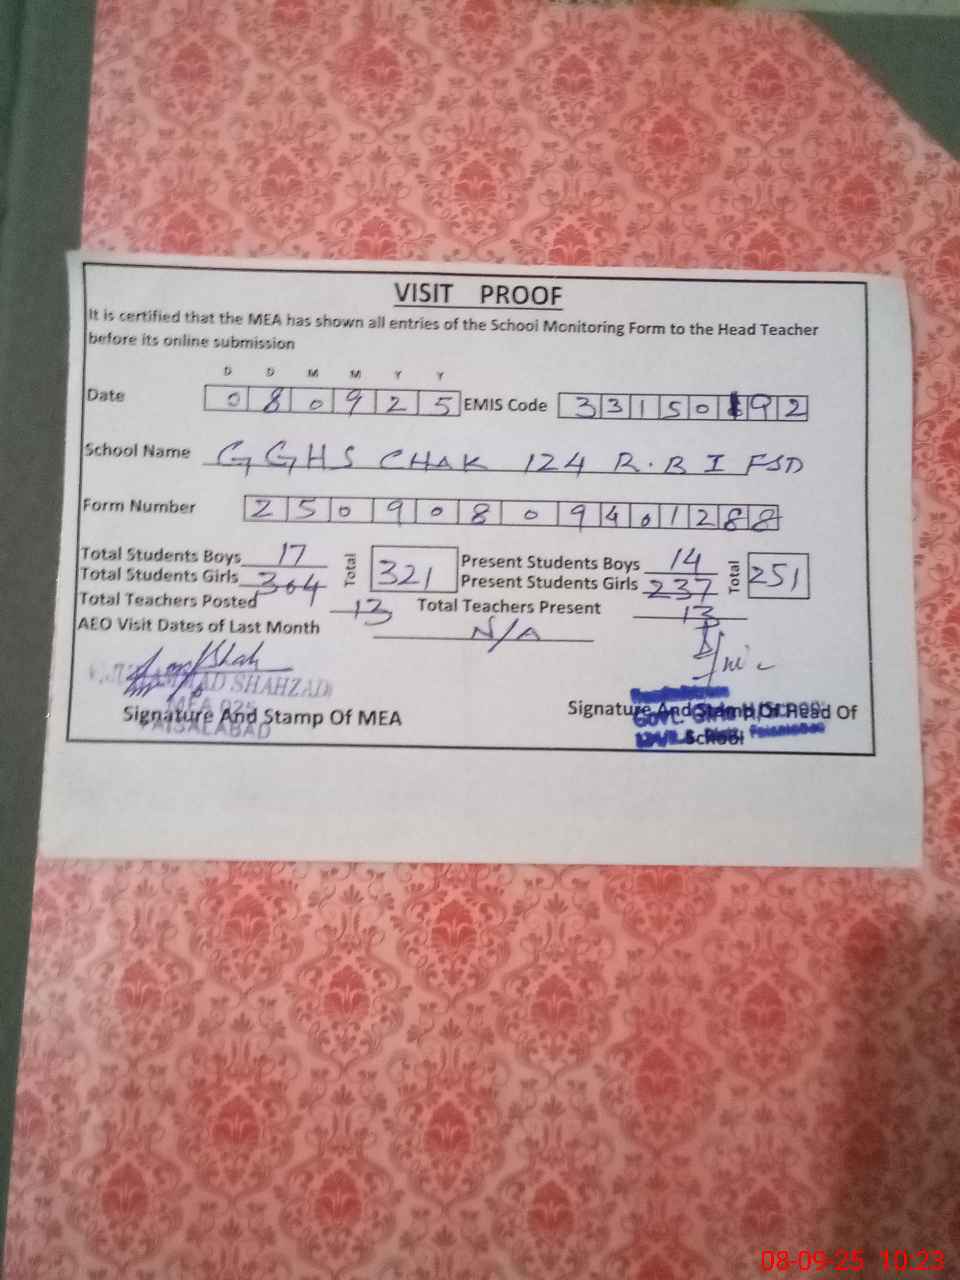 VISIT PROOF
It is certified that the MEA has shown all entries of the School Monitoring Form to the Head Teacher
before its online submission
D D M M Y Y
Date 0 8 0 9 2 5 EMIS Code 3 3 1 5 0 1 9 2
School Name GGHS CHAK 124 R.B I FSD
Form Number 2 5 0 9 0 8 0 9 4 0 1 2 8 8
Total Students Boys 17 Total 321 Present Students Boys 14 Total 251
Total Students Girls 304 Present Students Girls 237
Total Teachers Posted 13 Total Teachers Present 13
AEO Visit Dates of Last Month N/A
SHAHZAD
MEA
FAISALABAD
Signature And Stamp Of MEA
Signature And Stamp Of Head Of
School
08-09-25 10:23